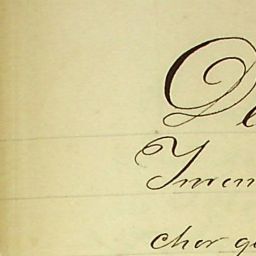 De
Inven
cher qu